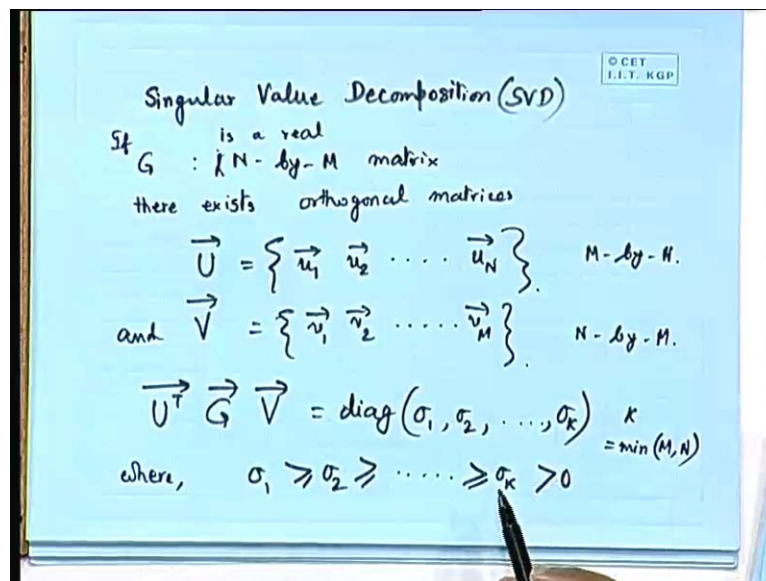 © CET
I.I.T. KGP
Singular Value Decomposition (SVD)
If is a real
G : N-by-M matrix
there exists orthogonal matrices
U⃗ = { u⃗₁ u⃗₂ .... u⃗_N }. M-by-N.
and V⃗ = { v⃗₁ v⃗₂ ..... v⃗_M }. N-by-M.
U⃗ᵀ G⃗ V⃗ = diag(σ₁, σ₂, ..., σ_K) K
= min(M, N)
where, σ₁ ⩾ σ₂ ⩾ ..... ⩾ σ_K > 0